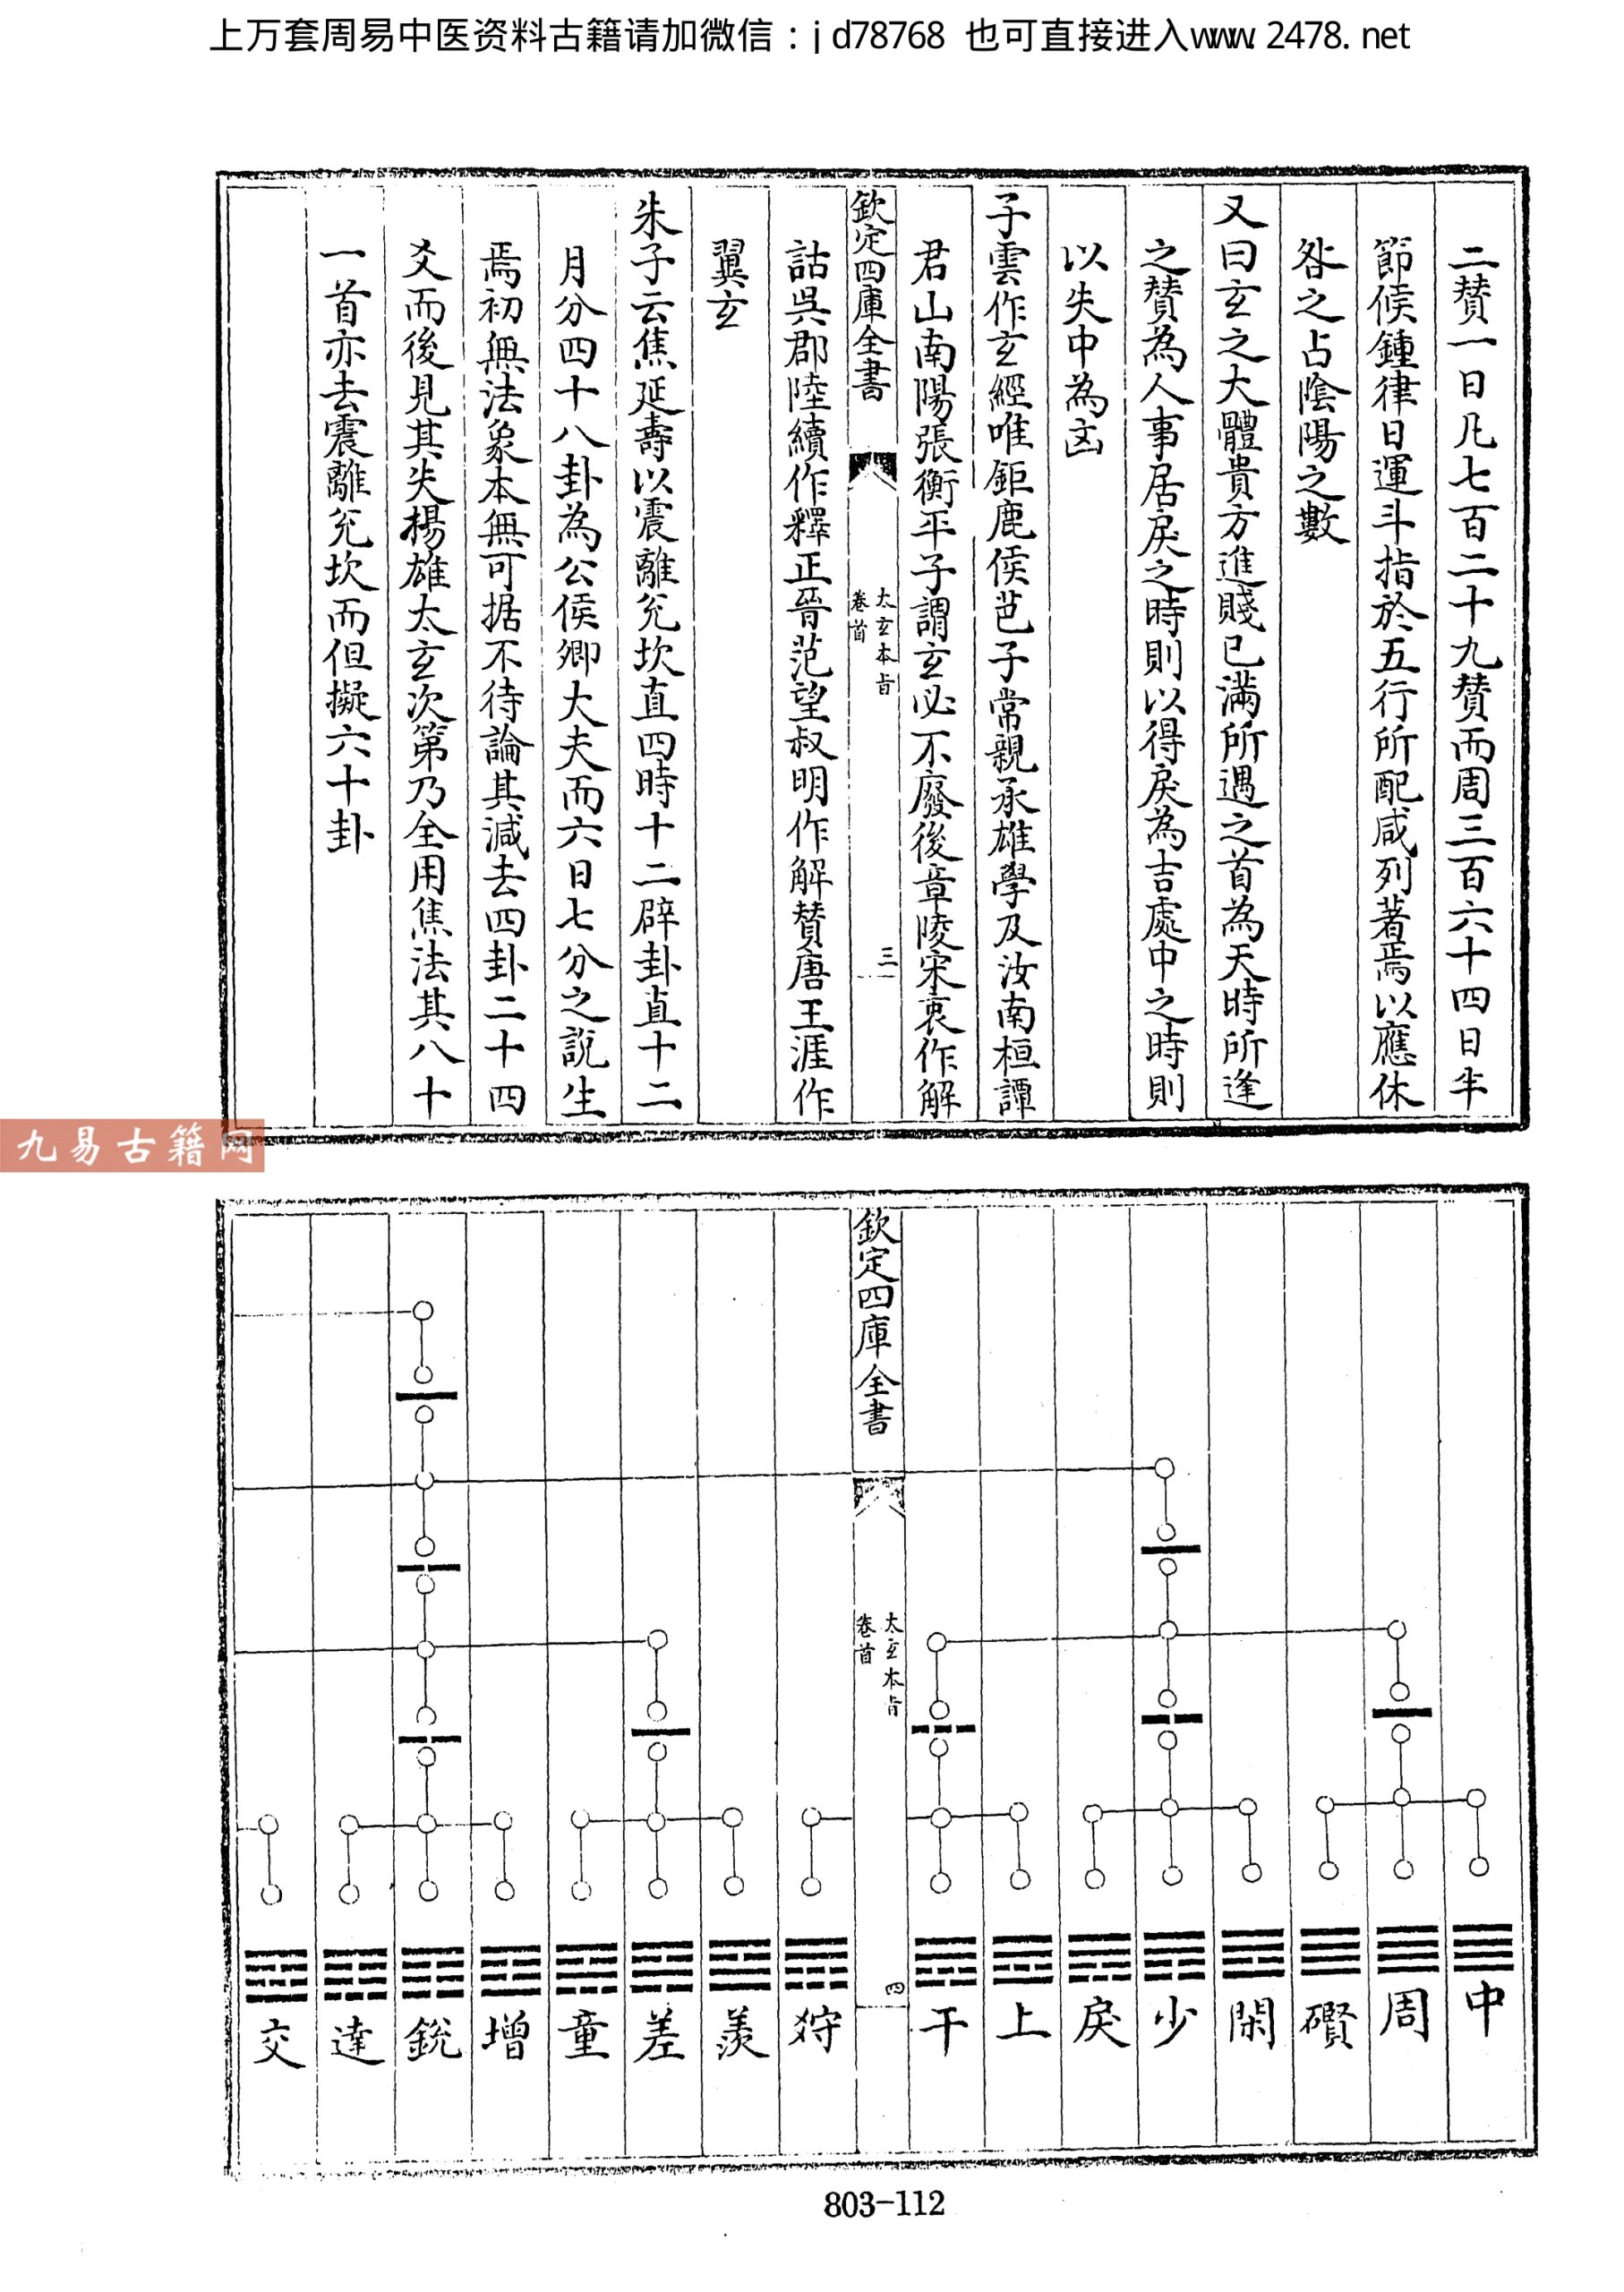 上万套周易中医资料古籍请加微信：jd78768 也可直接进入www.2478.net
二贊一日凡七百二十九贊而周三百六十四日半
節候鍾律日運斗指於五行所配咸列著焉以應休
咎之占陰陽之數
又曰玄之大體貴方進賤已滿所遇之首為天時所逢
之贊為人事居戾之時則以得戾為吉處中之時則
以失中為凶
子雲作玄經唯鉅鹿侯芭子常親承雄學及汝南桓譚
君山南陽張衡平子謂玄必不廢後章陵宋衷作解
欽定四庫全書
太玄本旨
卷首
三
詁吳郡陸績作釋正晉范望叔明作解贊唐王涯作
翼玄
朱子云焦延壽以震離兌坎直四時十二辟卦直十二
月分四十八卦為公侯卿大夫而六日七分之說生
焉初無法象本無可据不待論其減去四卦二十四
爻而後見其失楊雄太玄次第乃全用焦法其八十
一首亦去震離兌坎而但擬六十卦
九易古籍网
中
周
礥
閑
少
戾
上
干
欽定四庫全書
太玄本旨
卷首
四
狩
羨
差
童
增
銳
達
交
803-112